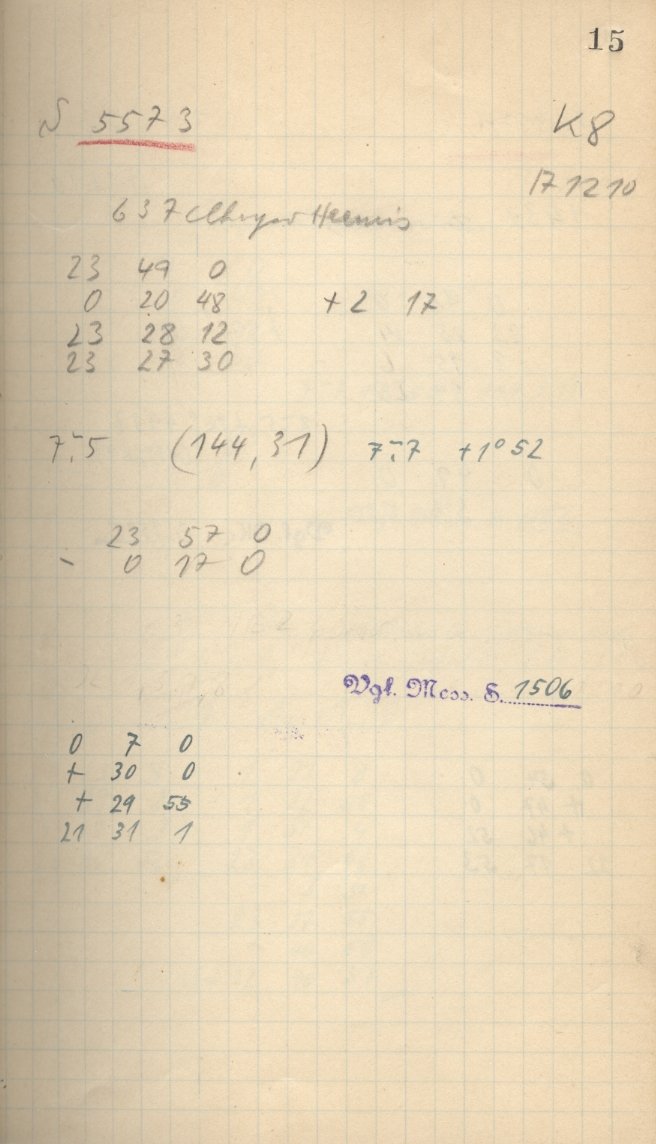 15
S 5573
K8
17 12 10
637
23 49 0
0 20 48 +2 17
23 28 12
23 27 30
7.5 (144,31) 7.7 +1° 52
23 57 0
- 0 17 0
Vgl. Mess. S. 1506
0 7 0
+ 30 0
+ 29 55
21 31 1